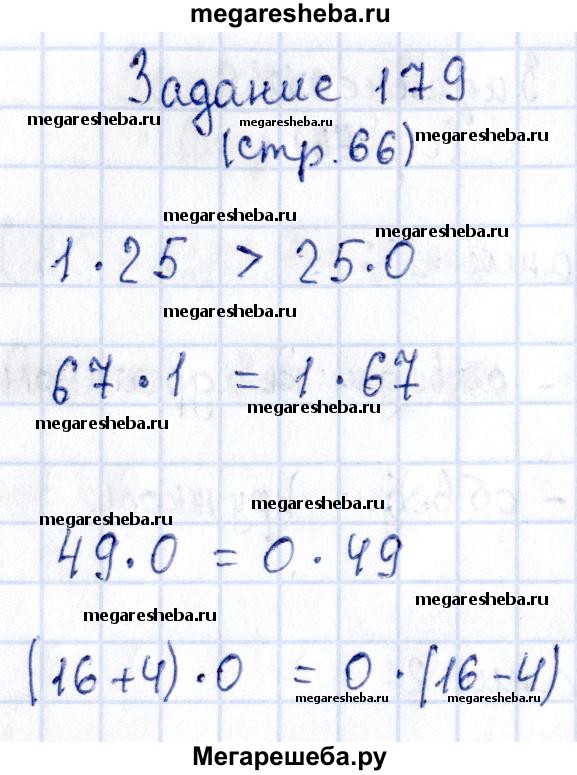 megaresheba.ru
Задание 179
megaresheba.ru megaresheba.ru megaresheba.ru
(стр. 66)
megaresheba.ru megaresheba.ru
1 · 25 > 25 · 0
megaresheba.ru
67 · 1 = 1 · 67
megaresheba.ru megaresheba.ru
megaresheba.ru megaresheba.ru
49 · 0 = 0 · 49
megaresheba.ru megaresheba.ru
(16+4) · 0 = 0 · (16-4)
megaresheba.ru megaresheba.ru
Мегарешеба.ру